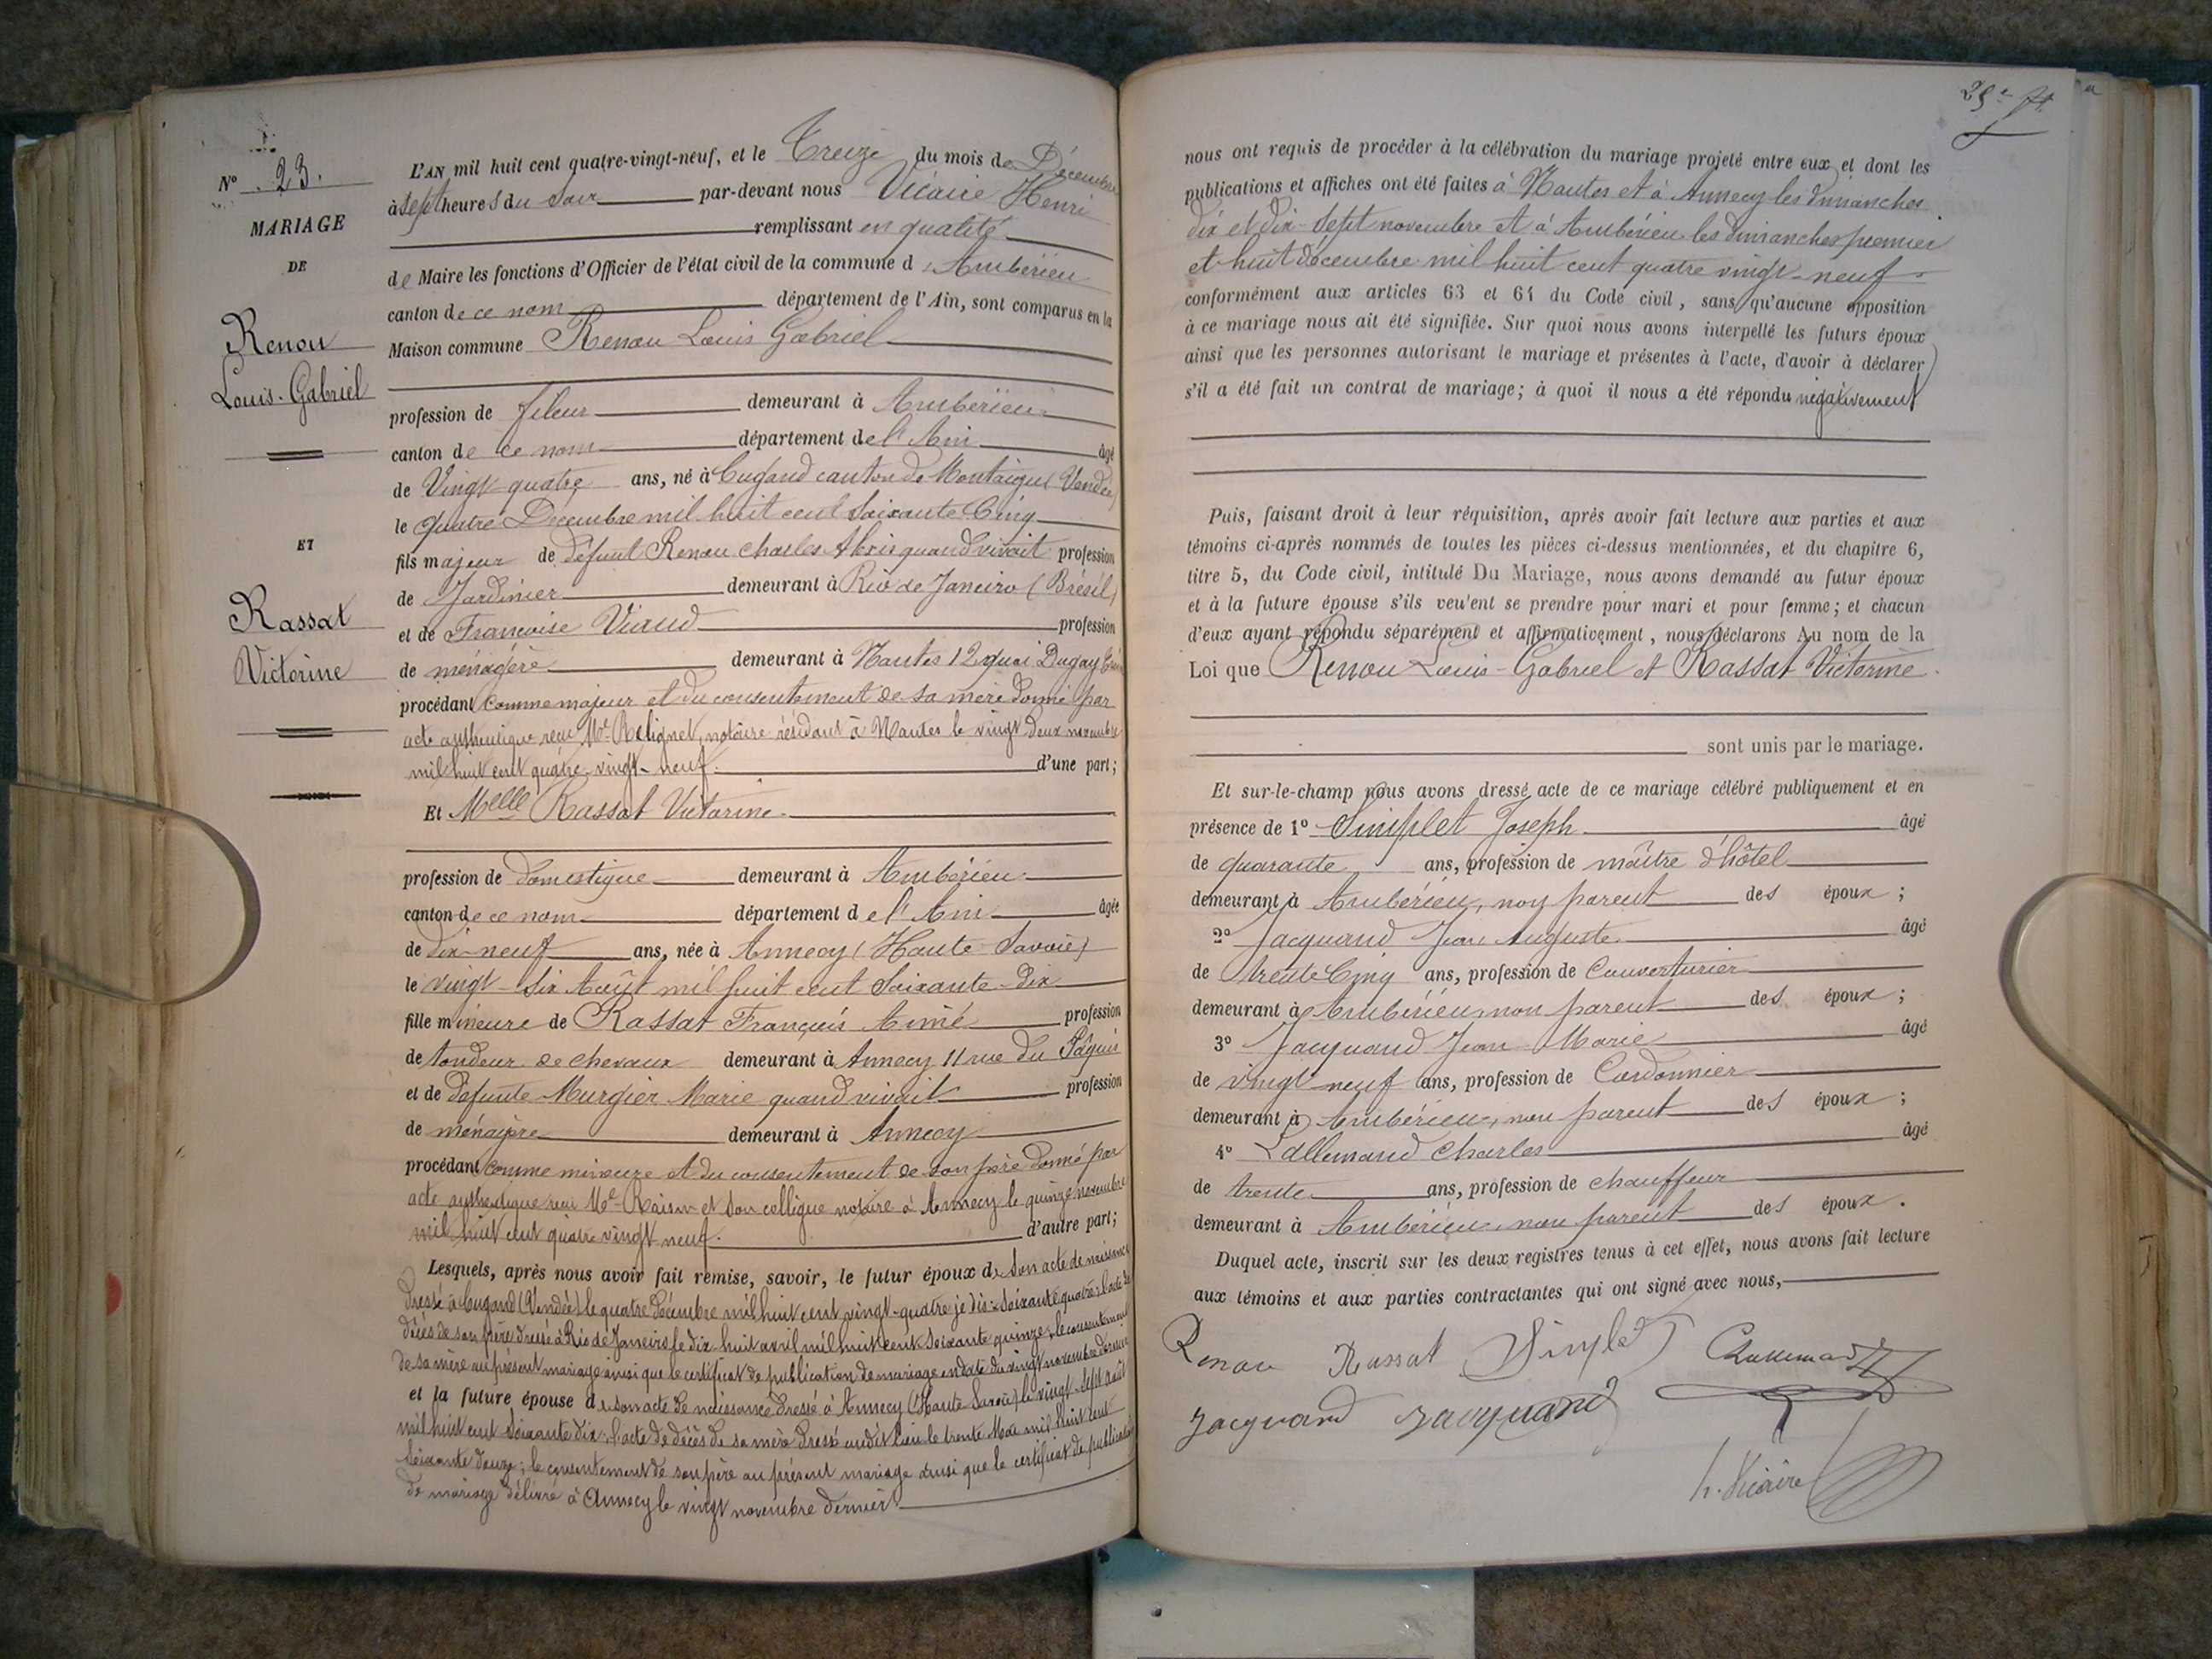 N° 23.
MARIAGE
DE
Renou
Louis-Gabriel
ET
Rassat
Victorine
L'AN mil huit cent quatre-vingt-neuf, et le Treize du mois de Décembre
à sept heures du soir par-devant nous Vicaire Henri
remplissant en qualité
de Maire les fonctions d'Officier de l'état civil de la commune d'Ambérieu
canton de ce nom département de l'Ain, sont comparus en la
Maison commune Renou Louis Gabriel
profession de fileur demeurant à Ambérieu
canton de ce nom département de l'Ain âgé
de Vingt-quatre ans, né à Cugand canton de Montaigu (Vendée)
le quatre Décembre mil huit cent soixante-Cinq
fils majeur de défunt Renou Charles quand vivait profession
de Jardinier demeurant à Rio de Janeiro (Brésil)
et de Françoise Viaud profession
de ménagère demeurant à Nantes 12 quai Dugay
procédant comme majeur et du consentement de sa mère donné par
acte authentique reçu Me notaire résidant à Nantes le vingt deux novembre
mil huit cent quatre-vingt-neuf. d'une part;
Et Melle Rassat Victorine
profession de domestique demeurant à Ambérieu
canton de ce nom département de l'Ain âgée
de dix-neuf ans, née à Annecy (Haute-Savoie)
le vingt-six Août mil huit cent soixante-dix
fille mineure de Rassat François Aimé profession
de tondeur de chevaux demeurant à Annecy 11 rue du Pâquis
et de défunte Murgier Marie quand vivait profession
de ménagère demeurant à Annecy
procédant comme mineure et du consentement de son père donné par
acte authentique reçu Me Raisin et son collègue notaire à Annecy le quinze novembre
mil huit cent quatre vingt neuf. d'autre part;
Lesquels, après nous avoir fait remise, savoir, le futur époux de son acte de naissance
dressé à Cugand (Vendée) le quatre décembre mil huit cent vingt-quatre je dis: soixante quatre; l'acte de
décès de son père dressé à Rio de Janeiro le dix huit avril mil huit cent soixante quinze; le consentement
de sa mère au présent mariage ainsi que le certificat de publication de mariage en date du vingt novembre dernier
et la future épouse de son acte de naissance dressé à Annecy (Haute Savoie) le vingt-sept août
mil huit cent soixante dix; l'acte de décès de sa mère dressé audit lieu le trente Mai mil huit cent
soixante douze; le consentement de son père au présent mariage ainsi que le certificat de publication
de mariage délivré à Annecy le vingt novembre dernier
nous ont requis de procéder à la célébration du mariage projeté entre eux et dont les
publications et affiches ont été faites à Nantes et à Annecy les dimanches
dix et dix-sept novembre et à Ambérieu les dimanches premier
et huit décembre mil huit cent quatre vingt-neuf
conformément aux articles 63 et 64 du Code civil, sans qu'aucune opposition
à ce mariage nous ait été signifiée. Sur quoi nous avons interpellé les futurs époux
ainsi que les personnes autorisant le mariage et présentes à l'acte, d'avoir à déclarer
s'il a été fait un contrat de mariage; à quoi il nous a été répondu négativement
Puis, faisant droit à leur réquisition, après avoir fait lecture aux parties et aux
témoins ci-après nommés de toutes les pièces ci-dessus mentionnées, et du chapitre 6,
titre 5, du Code civil, intitulé Du Mariage, nous avons demandé au futur époux
et à la future épouse s'ils veulent se prendre pour mari et pour femme; et chacun
d'eux ayant répondu séparément et affirmativement, nous déclarons Au nom de la
Loi que Renou Louis-Gabriel et Rassat Victorine
sont unis par le mariage.
Et sur-le-champ nous avons dressé acte de ce mariage célébré publiquement et en
présence de 1° Simplet Joseph âgé
de quarante ans, profession de maître d'hôtel
demeurant à Ambérieu, non parent des époux;
2° Jacquand Jean Auguste âgé
de trente Cinq ans, profession de Couverturier
demeurant à Ambérieu, non parent des époux;
3° Jacquand Jean Marie âgé
de vingt neuf ans, profession de Cordonnier
demeurant à Ambérieu, non parent des époux;
4° Lallemand Charles âgé
de trente ans, profession de chauffeur
demeurant à Ambérieu, non parent des époux.
Duquel acte, inscrit sur les deux registres tenus à cet effet, nous avons fait lecture
aux témoins et aux parties contractantes qui ont signé avec nous,
Renou Rassat Simplet Lallemand
Jacquand Jacquand
h. Vicaire